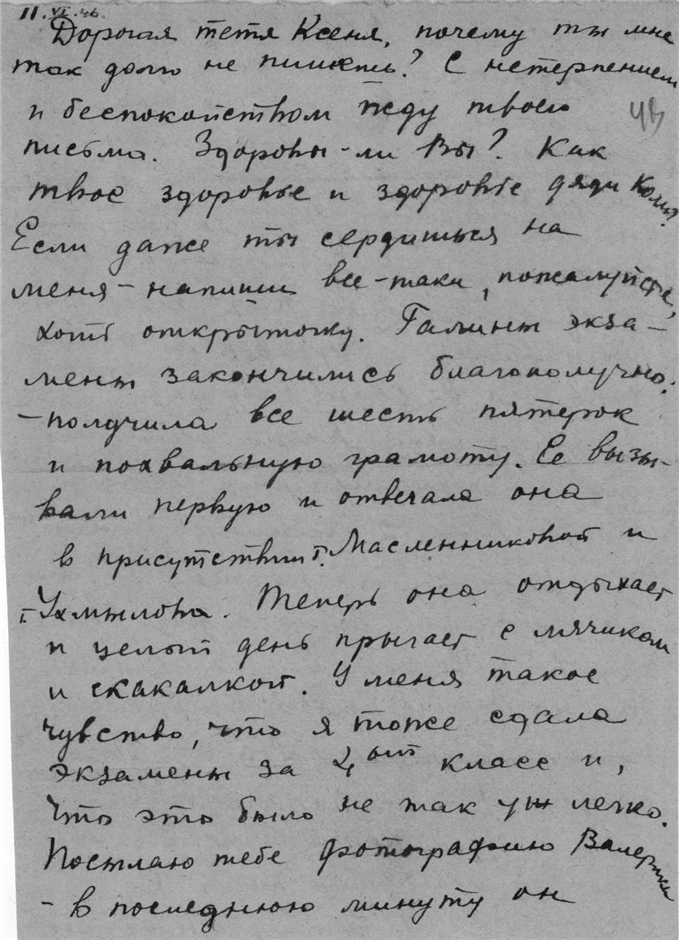 11.VI.46.
Дорогая тетя Ксеня, почему ты мне
так долго не пишешь? С нетерпением
и беспокойством жду твоего
письма. Здоровы-ли Вы? Как
твое здоровье и здоровье дяди Коли?
Если даже ты сердишься на
меня - напиши все-таки, пожалуйста,
хоть открыточку. Галины экза-
мены закончились благополучно:
- получила все шесть пятерок
и похвальную грамоту. Ее вызы-
вали первую и отвечала она
в присутствии г. Масленниковой и
г. Ухмылова. Теперь она отдыхает
и целый день прыгает с мячиком
и скакалкой. У меня такое
чувство, что я тоже сдала
экзамены за 4ый класс и,
что это было не так уж легко.
Посылаю тебе фотографию Валерки
- в последнюю минуту он